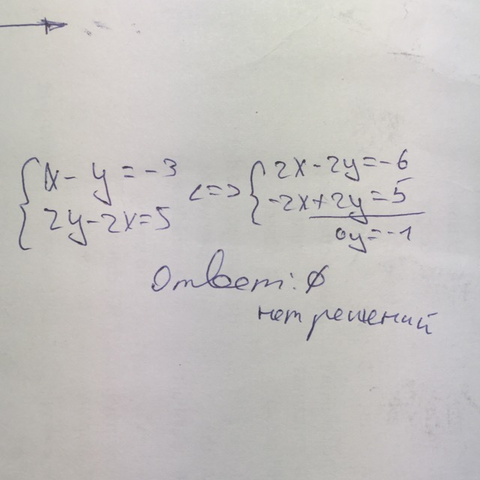 { x - y = -3 <=> { 2x - 2y = -6
{ 2y - 2x = 5 { -2x + 2y = 5
0y = -1
Ответ: ∅
нет решений